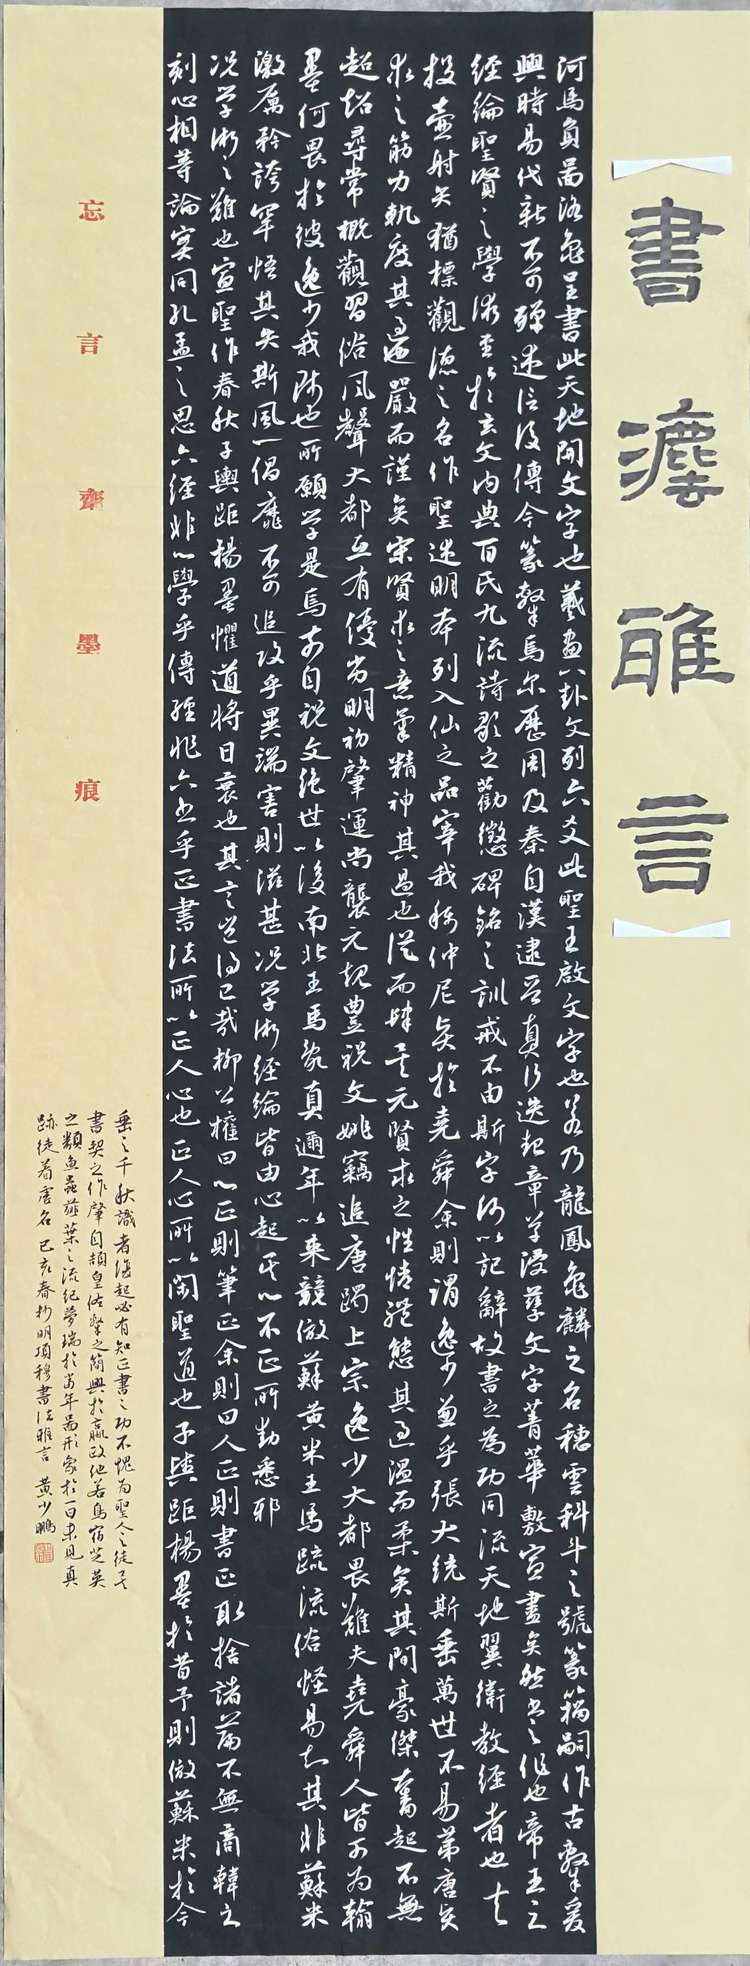 書灋雅言
河馬負圖洛龜呈書此天地開文字也羲畫八卦文列六爻此聖王啟文字也若乃龍鳳龜麟之名穗雲科斗之號篆籀嗣作古隸爰
興時易代新不可殫述信後傳今篆隸焉尔歷周及秦自漢逮晉真行迭起章草浸孳文字菁華敷宣盡矣然書之作也帝王之
經綸聖賢之學術至於玄文內典百氏九流詩歌之勸懲碑銘之訓戒不由斯字何以記辭故書之為功同流天地翼衛教經者也夫
投壺射矢猶標觀德之名作聖述明本列入仙之品宰我稱仲尼賢於堯舜余則謂逸少兼乎張大統斯垂萬世不易第唐賢
求之筋力軌度其過嚴而謹矣宋賢求之意氣精神其過也從而肆矣元賢求之性情體態其過溫而柔矣其間豪傑奮起不無
超超尋常概觀習俗風聲大都互有優劣明初肇運尚襲元規豐祝文姚竊追唐躅上宗逸少大都畏難夫堯舜人皆可為翰
墨何畏於彼逸少我師也所願學是焉奈自祝文絕世以後南北王馬亂真邇年以來競倣蘇黃米王馬疏流俗怪易知其非蘇米
激厲矜誇罕悟其失斯風一倡靡不可追攻乎異端害則滋甚況學術經綸皆由心起其心不正所動悉邪
況學術之難也宣聖作春秋子輿距楊墨懼道將日衰也其言豈得已哉柳公權曰心正則筆正余則曰人正則書正取捨諸篇不無商韓之
刻心相等論實同孔孟之思六經非心學乎傳經非六書乎正書法所以正人心也正人心所以閑聖道也子輿距楊墨於昔予則倣蘇米於今
垂之千秋識者復起必有知正書之功不愧為聖人之徒矣
書契之作肇自頡皇佐隸之簡興於嬴政他若鳥宿芝英
之類魚蟲薤葉之流紀夢瑞於當年圖形象於一日未見真
跡徒着虛名 己亥春抄明項穆書法雅言 黃少鵬
忘言齋墨痕